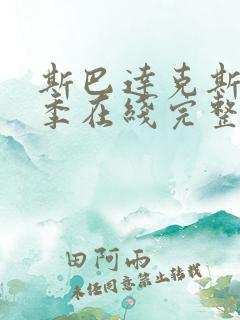 斯巴达克斯
季在线完整
田阿雨
未经同意禁止转载